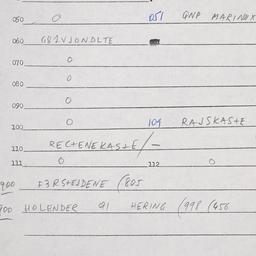 050 0 051 GNP MARINEX
060 GBIVJONDLTE
070 0
080 0
090 0
100 0 104 RAJSKASTE
110 RECTENEKASSE/-
111 0 112 0
900 FZRSTEJDENE (805
700 HOLENDER 91 HERING (998 (456